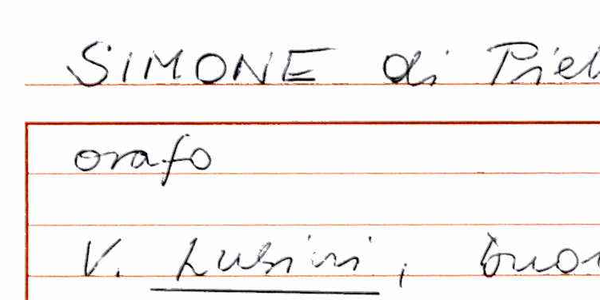 SIMONE di
orafo
V. Lusini,